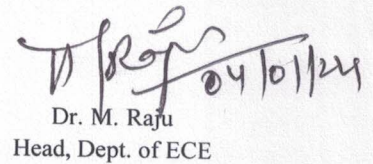 04/01/24
Dr. M. Raju
Head, Dept. of ECE